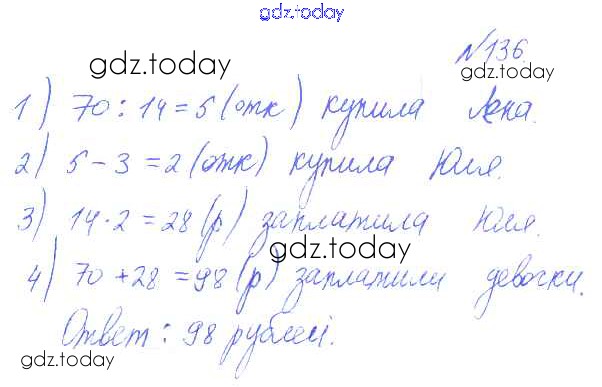 gdz.today
№136
gdz.today
gdz.today
1) 70 : 14 = 5 (отк) купила Лена.
2) 5 - 3 = 2 (отк) купила Юля.
3) 14 · 2 = 28 (р) заплатила Юля.
gdz.today
4) 70 + 28 = 98 (р) заплатили девочки.
Ответ: 98 рублей.
gdz.today
gdz.today